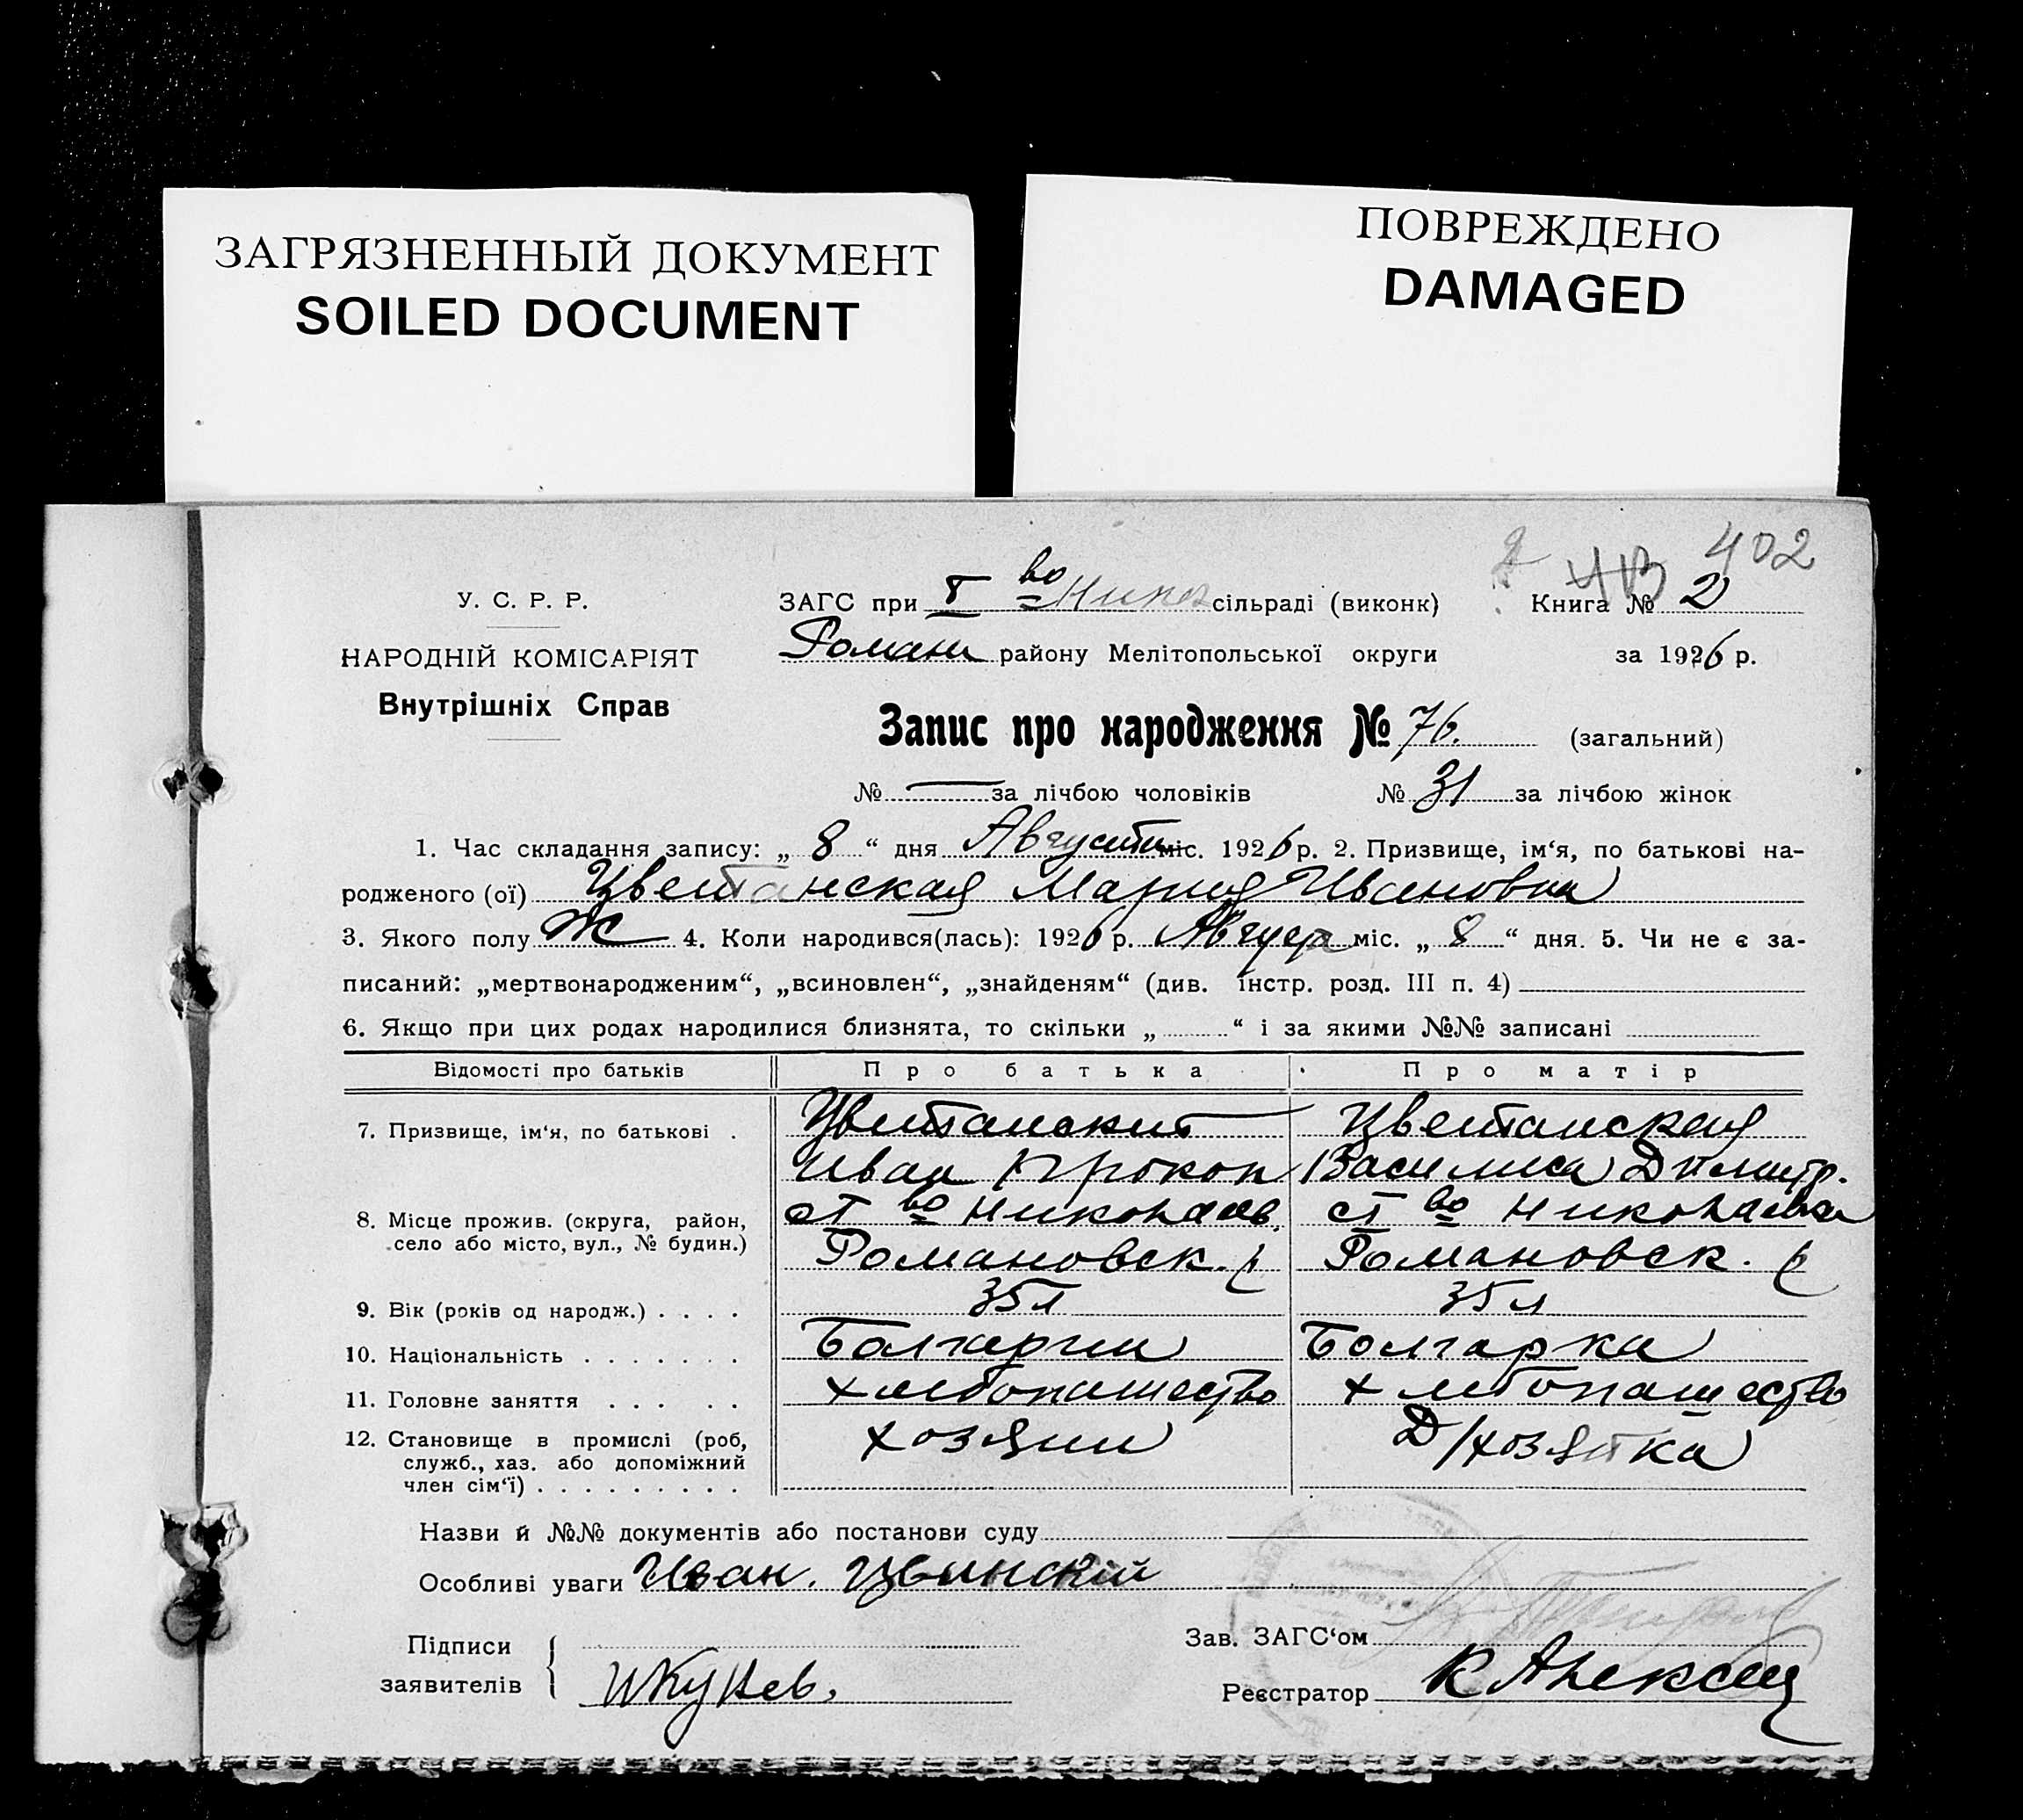 ЗАГРЯЗНЕННЫЙ ДОКУМЕНТ
SOILED DOCUMENT
ПОВРЕЖДЕНО
DAMAGED
402
У. С. Р. Р.
НАРОДНІЙ КОМІСАРІЯТ
Внутрішніх Справ
ЗАГС при во сільраді (виконк) Книга № 2
Роман району Мелітопольської округи за 1926 р.
Запис про народження № 76. (загальний)
№ — за лічбою чоловіків № 31 за лічбою жінок
1. Час складання запису: „ 8 “ дня Августа міс. 1926 р. 2. Призвище, ім‘я, по батькові на-
родженого (ої) Цветанская Мария Ивановна
3. Якого полу Ж 4. Коли народився(лась): 1926 р. Август міс. „ 8 “ дня. 5. Чи не є за-
писаний: „мертвонародженим“, „всиновлен“, „знайденям“ (див. інстр. розд. III п. 4)
6. Якщо при цих родах народилися близнята, то скільки „ “ і за якими №№ записані
Відомості про батьків Про батька Про матір
7. Призвище, ім‘я, по батькові . Цветанский Цветанская
Иван Прокоп Василиса Димитр.
8. Місце прожив. (округа, район, ст во Николаев. ст во Николаевка
село або місто, вул., № будин.) Романовск. р Романовск. р
9. Вік (років од народж.) . . . . 35 л 35 л
10. Національність . . . . . . . Болгарин Болгарка
11. Головне заняття . . . . . хлебопашество хлебопашество
12. Становище в промислі (роб, хозяин Д/хозяйка
служб., хаз. або допоміжний
член сім‘ї) . . . . . . . . .
Назви й №№ документів або постанови суду
Особливі уваги Иван. Цвинский
Підписи
заявителів
Зав. ЗАГС‘ом
Реєстратор К Алексеи